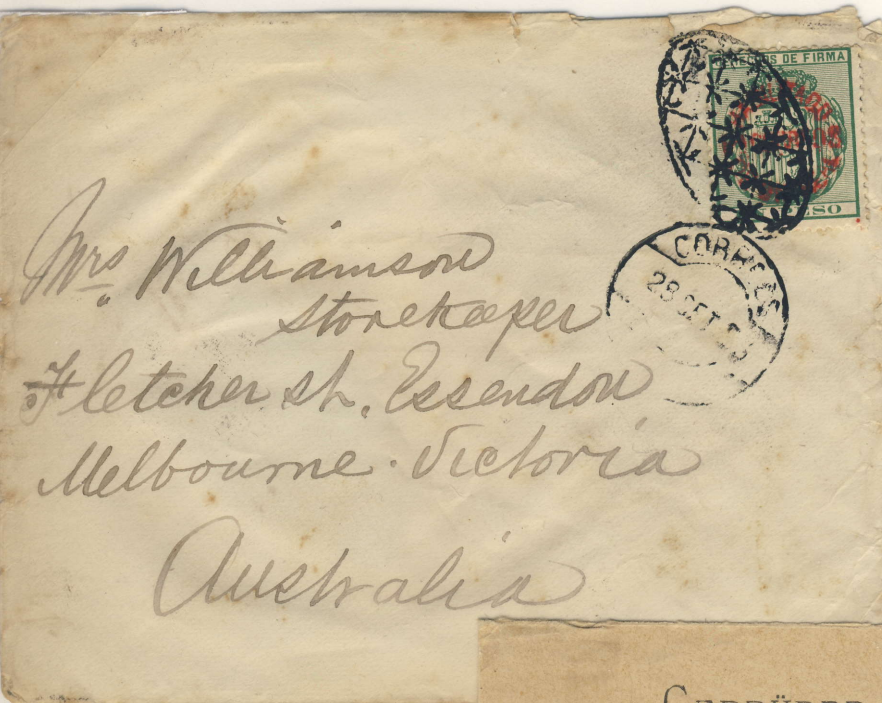 DERECHOS DE FIRMA
PESO
CORREOS
28 SET
Mrs Williamson
Storekeeper
Fletcher st, Essendon
Melbourne. Victoria
Australia
GEBRÜDER